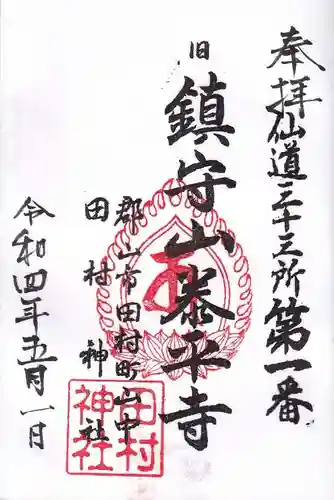 奉拝仙道三十三所第一番
旧
鎮守山泰平寺
郡山市田村町山中
田村神社
令和四年五月一日
田村神社